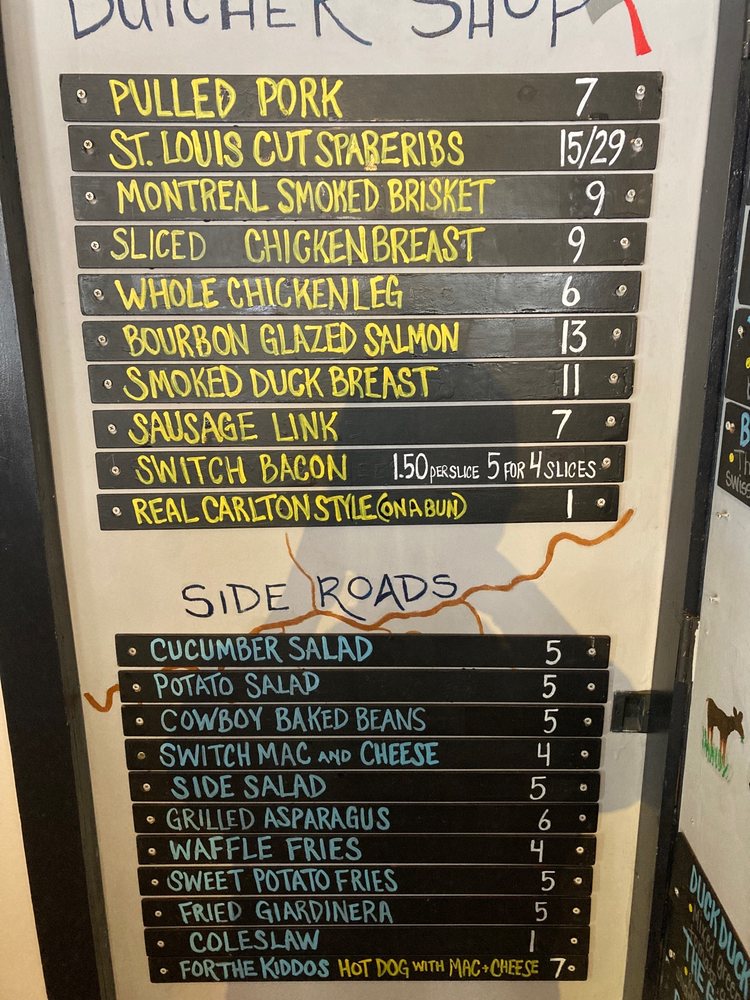 BUTCHER SHOP
PULLED PORK 7
ST. LOUIS CUT SPARERIBS 15/29
MONTREAL SMOKED BRISKET 9
SLICED CHICKEN BREAST 9
WHOLE CHICKEN LEG 6
BOURBON GLAZED SALMON 13
SMOKED DUCK BREAST 11
SAUSAGE LINK 7
SWITCH BACON 1.50 PER SLICE 5 FOR 4 SLICES
REAL CARLTON STYLE (ON A BUN) 1
SIDE ROADS
CUCUMBER SALAD 5
POTATO SALAD 5
COWBOY BAKED BEANS 5
SWITCH MAC AND CHEESE 4
SIDE SALAD 5
GRILLED ASPARAGUS 6
WAFFLE FRIES 4
SWEET POTATO FRIES 5
FRIED GIARDINERA 5
COLESLAW 1
FOR THE KIDDOS HOT DOG WITH MAC + CHEESE 7
DUCK DUCK
THE